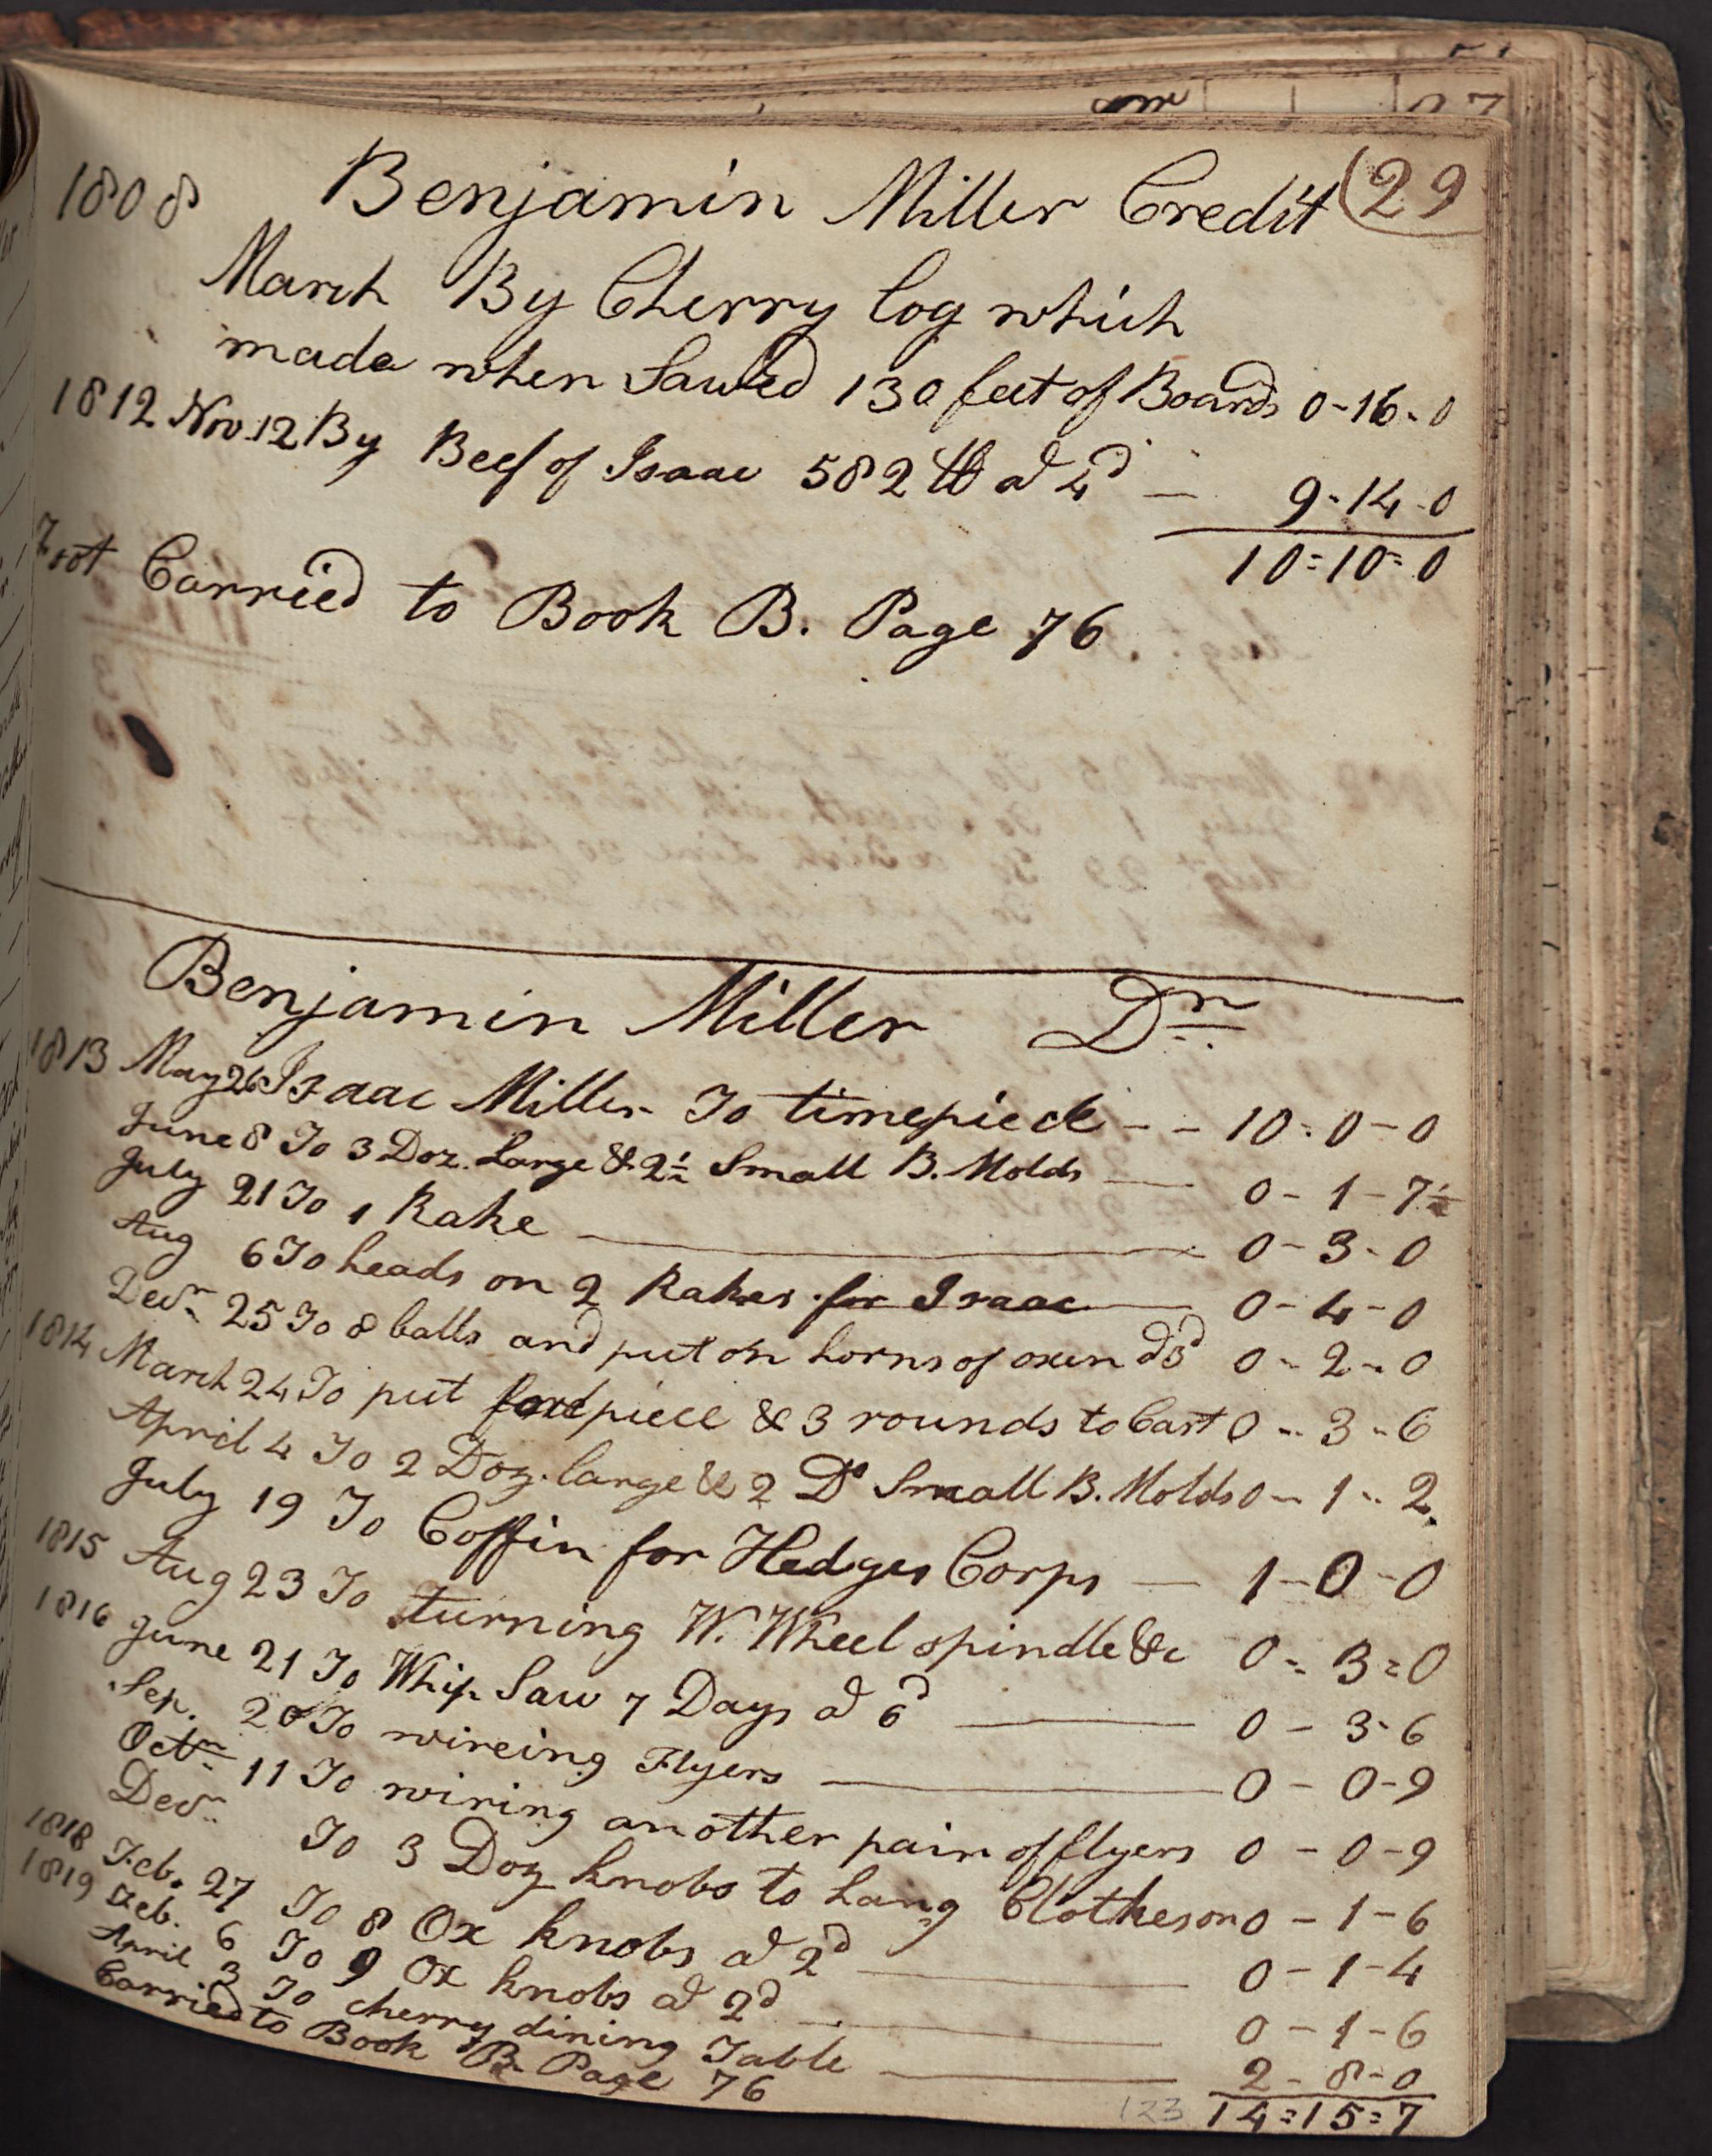 29
1808 Benjamin Miller Credit
March By Cherry log which
made when Sawed 130 feet of Boards 0-16-0
1812 Nov. 12 By Beef of Isaac 582 lb at 4d — 9-14-0
10=10=0
Carried to Book B. Page 76
Benjamin Miller Dr
1813 May 26 Isaac Miller To timepiece - - 10-0-0
June 8 To 3 Doz. Large & 2½ Small B. Molds — 0-1-7½
July 21 To 1 Rake — 0-3-0
Aug 6 To heads on 2 Rakes for Isaac — 0-4-0
Decr 25 To 8 balls and put on horns of oxen at 3d 0-2-0
1814 March 24 To put piece & 3 rounds to Cart 0-3-6
April 4 To 2 Doz. large & 2 Do Small B. Molds 0-1-2
July 19 To Coffin for Hedges Corps — 1-0-0
1815 Aug 23 To turning W. Wheel spindle &c 0=3=0
1816 June 21 To Whip Saw 7 Days at 6d — 0-3-6
Sep. 20 To wireing Flyers — 0-0-9
Octr 11 To wiring another pair of flyers 0-0-9
Decr To 3 Doz knobs to hang Clothes on 0-1-6
1818 Feb. 27 To 8 Ox knobs at 2d — 0-1-4
1819 Feb. 6 To 9 Ox knobs at 2d — 0-1-6
April 3 To cherry dining Table — 2-8-0
Carried to Book B Page 76 14=15=7
123